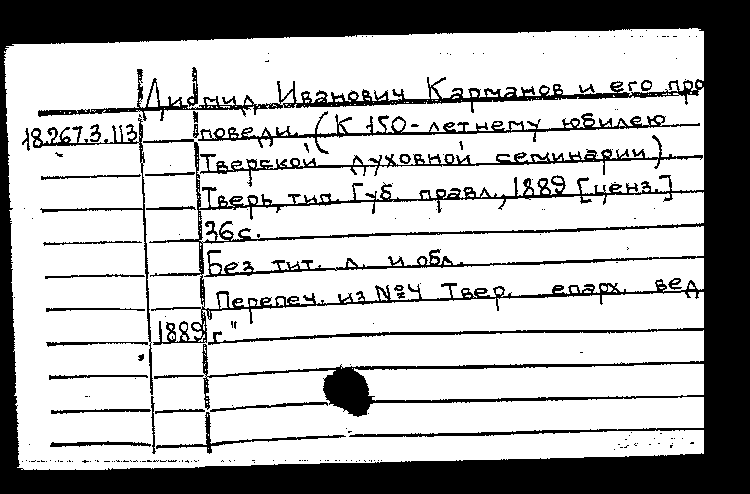 Диомид Иванович Карманов и его про
18.267.3.113 поведи. (К 150-летнему юбилею
Тверской духовной семинарии).
Тверь, тип. Губ. правл., 1889 [ценз.]
36 с.
Без тит. л. и обл.
"Перепеч. из №4 Твер. епарх. вед
1889 г."